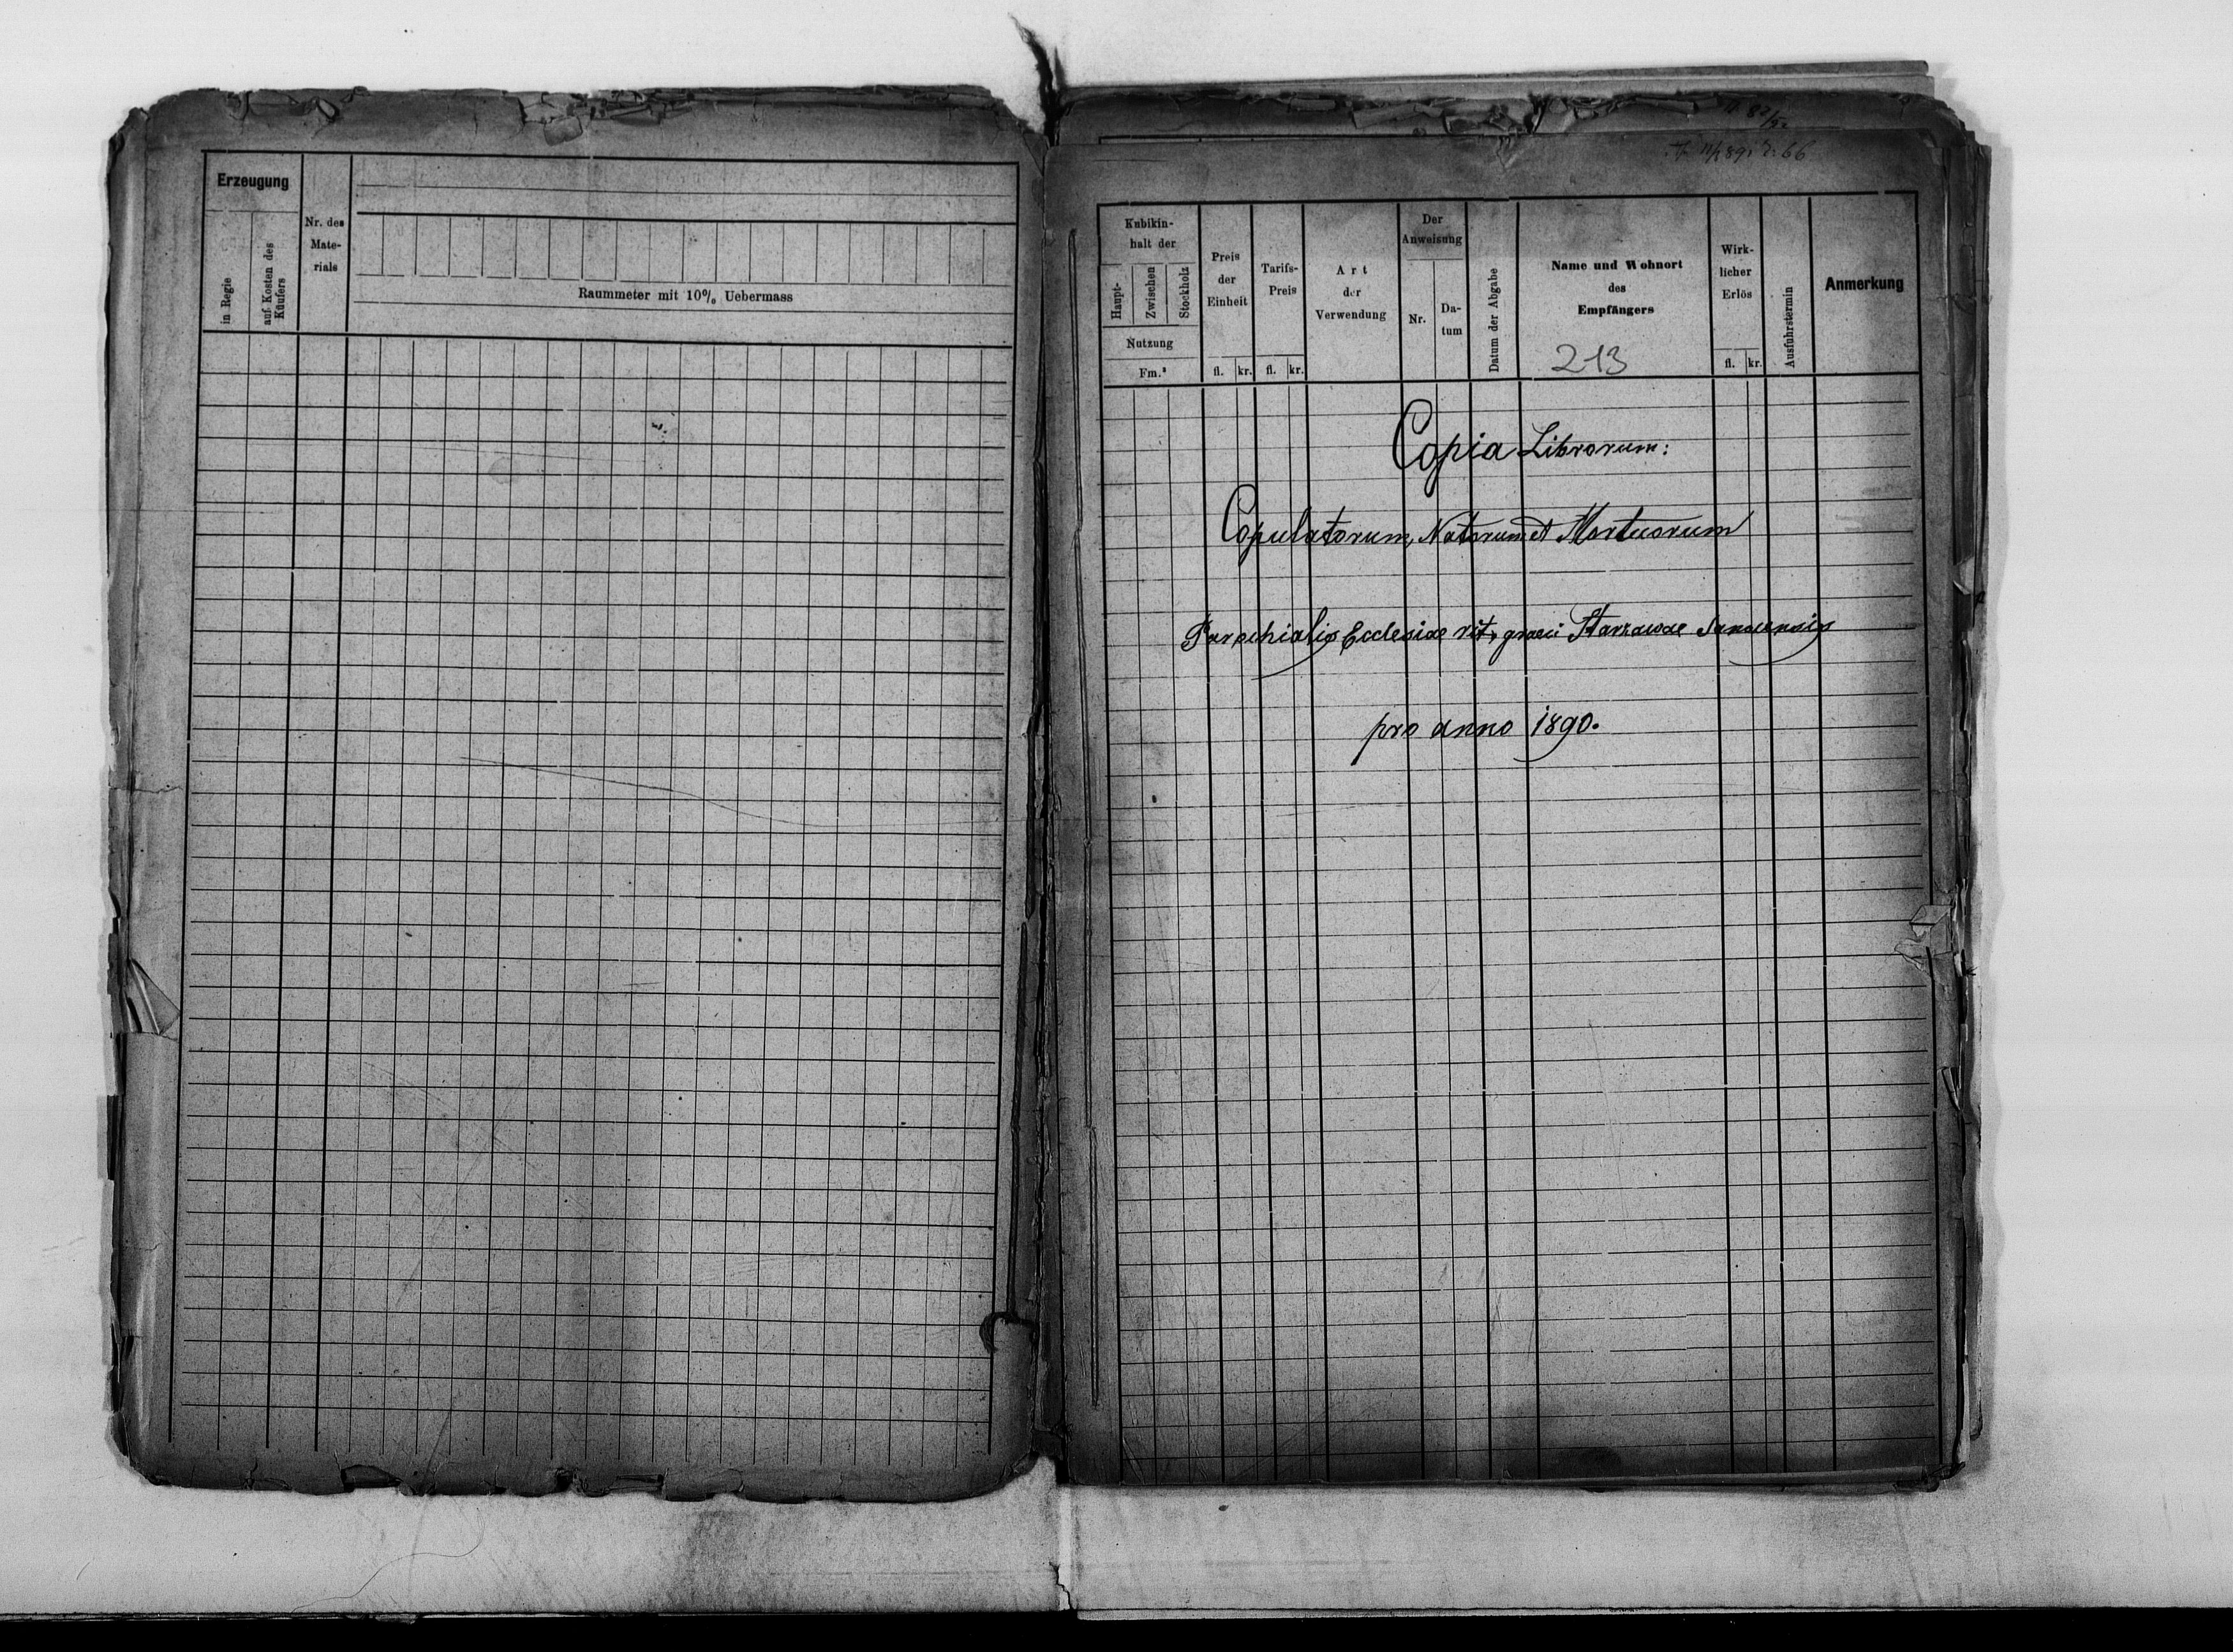 Erzeugung
in Regie
auf Kosten des
Käufers
Nr. des
Mate-
rials
Raummeter mit 10% Uebermass
66
Kubikin-
halt der
Haupt-
Zwischen
Stockholz
Nutzung
Fm.³
Preis
der
Einheit
fl. kr.
Tarifs-
Preis
fl. kr.
Art
der
Verwendung
Der
Anweisung
Nr.
Da-
tum
Datum der Abgabe
Name und Wohnort
des
Empfängers
213
Wirk-
licher
Erlös
fl. kr.
Ausfuhrstermin
Anmerkung
Copia Librorum:
Copulatorum, Natorum et Mortuorum
Parochialis Ecclesiae rit. graeci Starzawae Sanocensis
pro anno 1890.